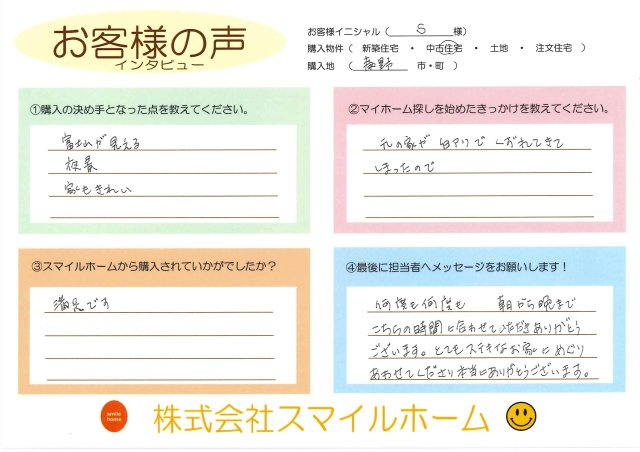 お客様の声
インタビュー
お客様イニシャル（ S 様）
購入物件（ 新築住宅 ・ 中古住宅 ・ 土地 ・ 注文住宅 ）
購入地（ 秦野 市・町）
①購入の決め手となった点を教えてください。
富士山が見える
夜景
家もきれい
②マイホーム探しを始めたきっかけを教えてください。
元の家が 白アリで くずれてきて
しまったので
③スマイルホームから購入されていかがでしたか？
満足です
④最後に担当者へメッセージをお願いします！
何度も何度も 朝から晩まで
こちらの時間に合わせていただきありがとう
ございます。とてもステキなお家にめぐり
あわせてくださり本当にありがとうございます。
smile
home
株式会社スマイルホーム